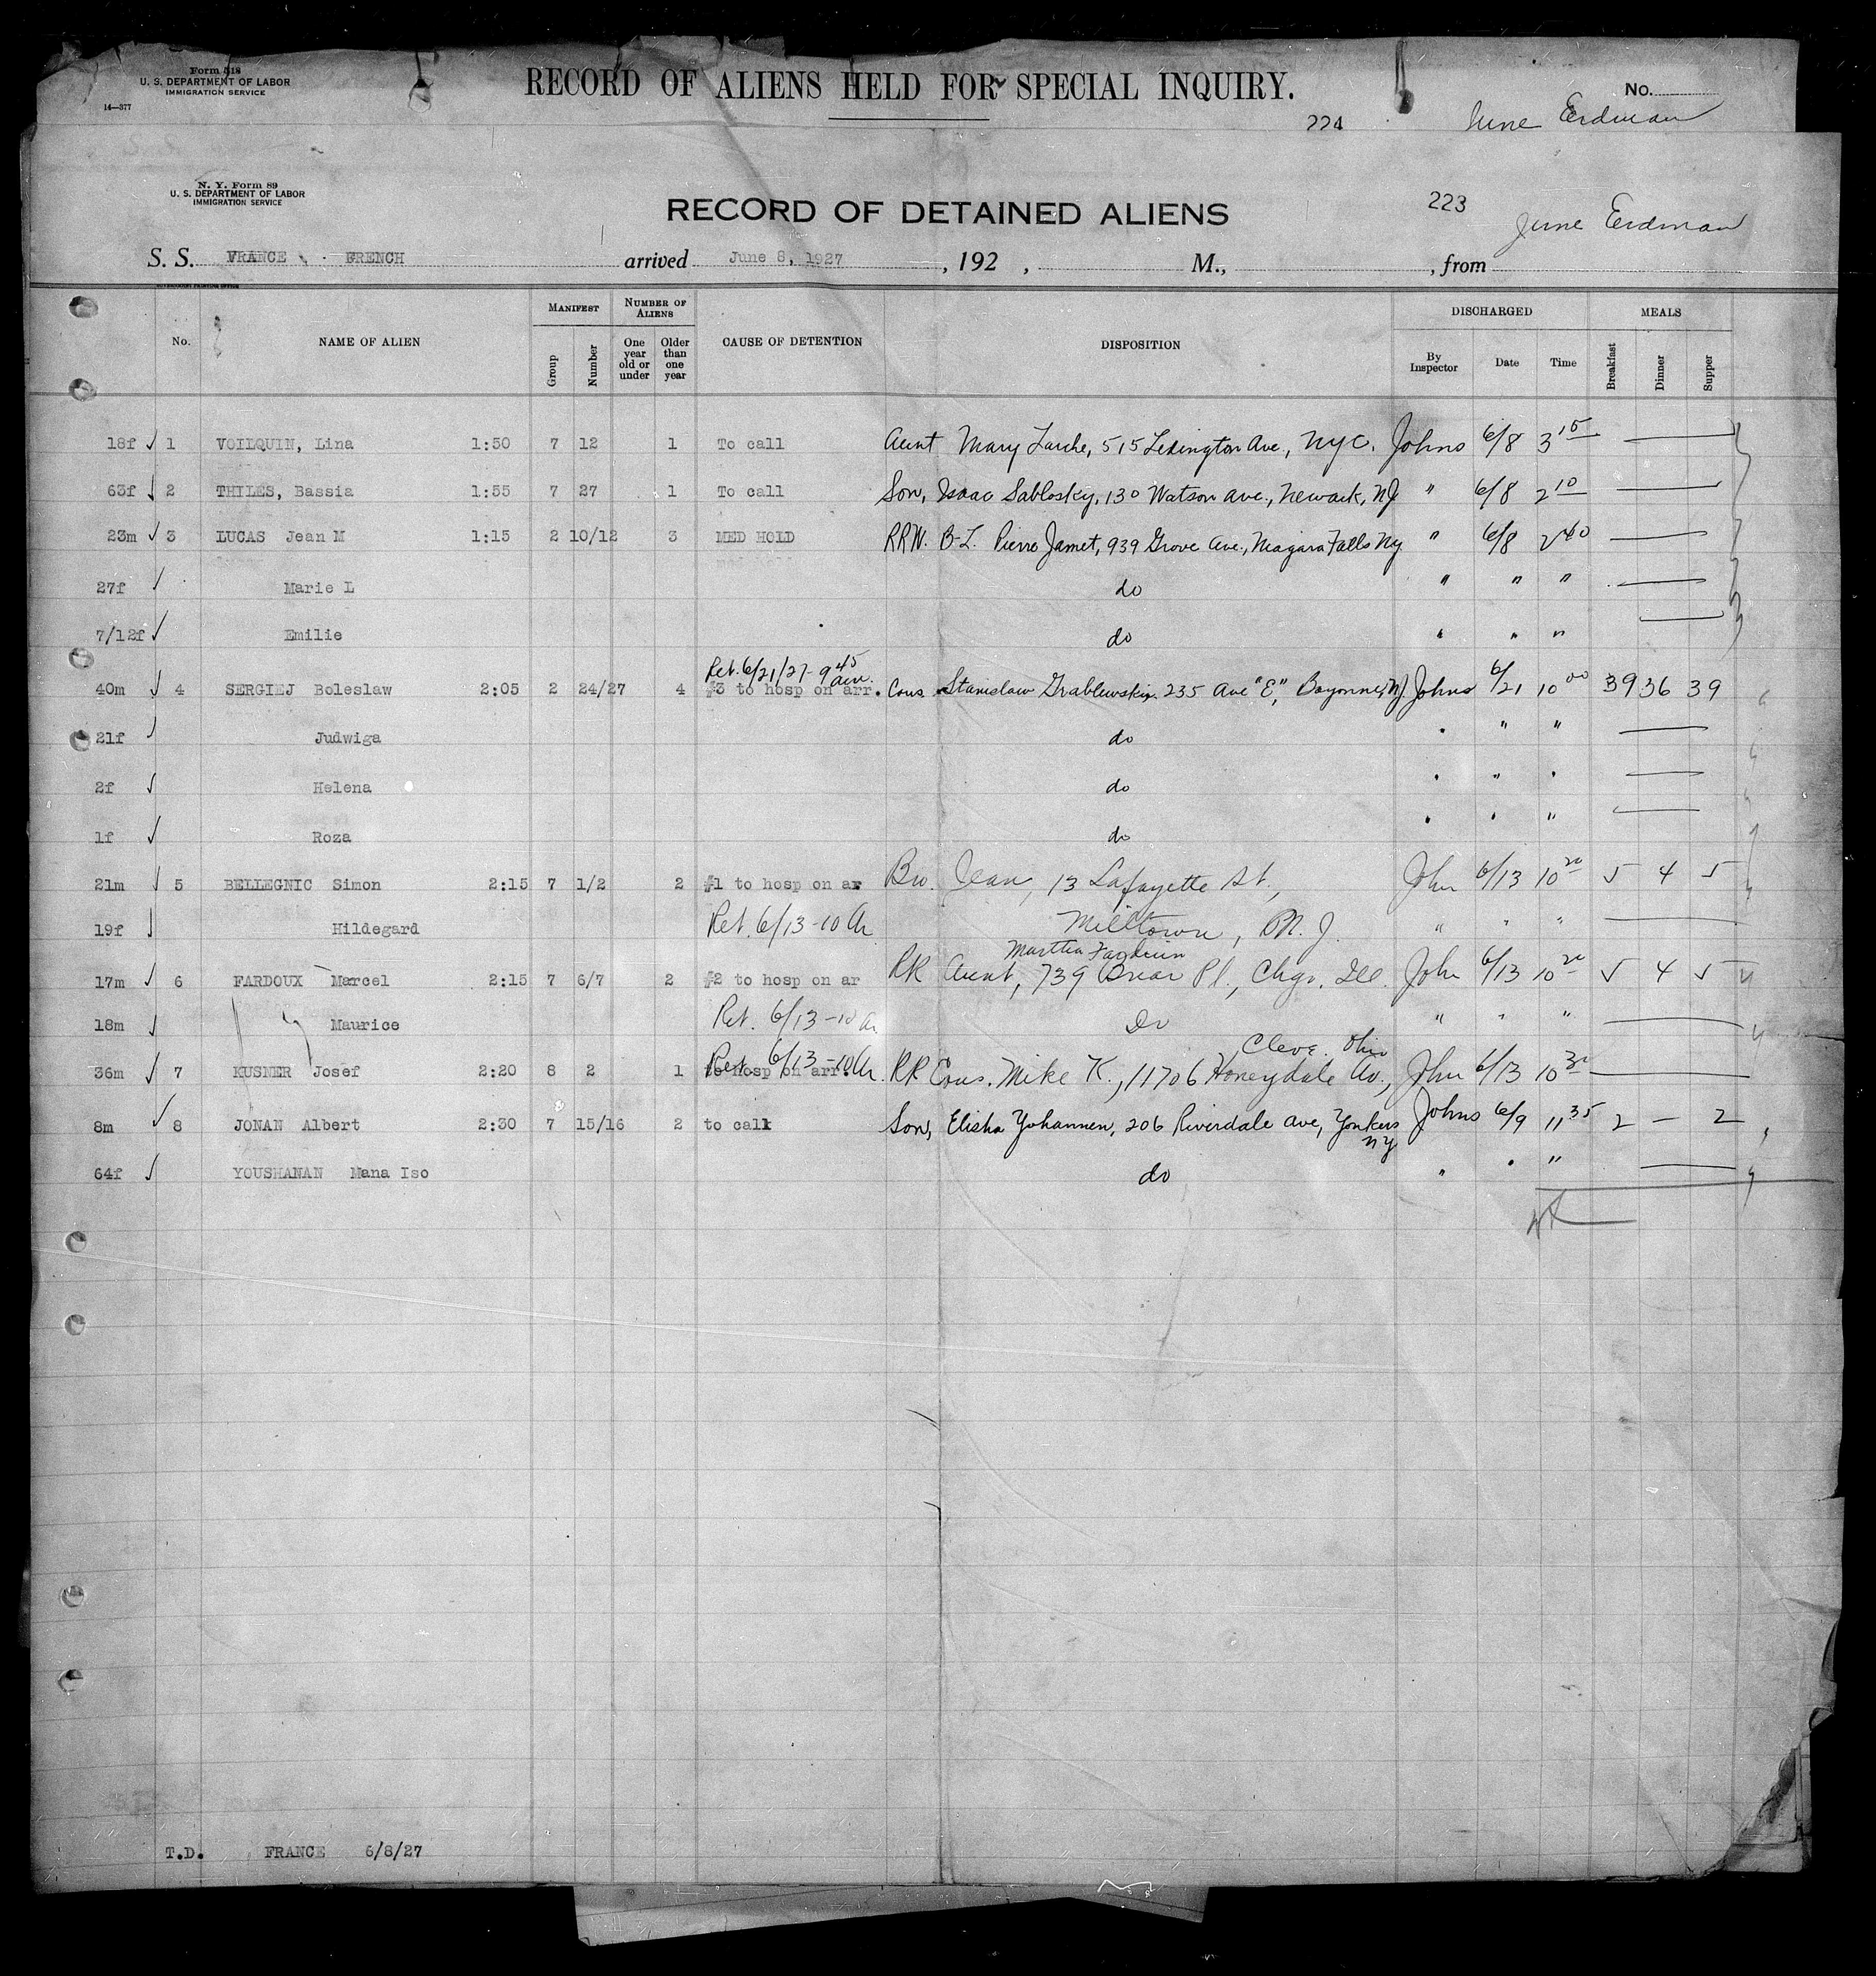 Form 518
U. S. DEPARTMENT OF LABOR
IMMIGRATION SERVICE
14—377
RECORD OF ALIENS HELD FOR SPECIAL INQUIRY.
No.
224 June Erdman
N. Y. Form 89
U. S. DEPARTMENT OF LABOR
IMMIGRATION SERVICE
RECORD OF DETAINED ALIENS
223 June Erdman
S. S. FRANCE FRENCH arrived June 8, 1927, 192 , M., , from
No. NAME OF ALIEN MANIFEST Group Number NUMBER OF ALIENS One year old or under Older than one year CAUSE OF DETENTION DISPOSITION DISCHARGED By Inspector Date Time MEALS Breakfast Dinner Supper
18f ✓ 1 VOILQUIN, Lina 1:50 7 12 1 To call Aunt Mary Larche, 515 Lexington Ave., NYC. Johns 6/8 3 15
63f ✓ 2 THILES, Bassia 1:55 7 27 1 To call Son, Isaac Sablosky, 130 Watson Ave., Newark, NJ " 6/8 2 10
23m ✓ 3 LUCAS Jean M 1:15 2 10/12 3 MED HOLD RRW. B-L. Pierre Jamet, 939 Grove Ave., Niagara Falls Ny " 6/8 2 40
27f ✓ Marie L do " " "
7/12f ✓ Emilie do " " "
Ret. 6/21/27 - 9 45 am.
40m ✓ 4 SERGIEJ Boleslaw 2:05 2 24/27 4 #3 to hosp on arr. Cous. Stanislaw Grablewski, 235 Ave "E", Bayonne, NJ. Johns 6/21 10 00 39 36 39
21f ✓ Judwiga do " " "
2f ✓ Helena do " " "
1f ✓ Roza do " " "
21m ✓ 5 BELLEGNIC Simon 2:15 7 1/2 2 #1 to hosp on ar Bro. Jean, 13 Lafayette St., John 6/13 10 20 5 4 5
19f ✓ Hildegard Ret. 6/13 - 10 A Milltown, N. J. " " "
17m ✓ 6 FARDOUX Marcel 2:15 7 6/7 2 #2 to hosp on ar RR Aunt, Martha 739 Briar Pl., Chgo. Ill. John 6/13 10 20 5 4 5
18m ✓ Maurice Ret. 6/13 - 10 A Do " " "
36m ✓ 7 KUSNER Josef 2:20 8 2 1 to hosp on arr. Ret. 6/13 - 10 A RR Cous. Mike K., 11706 Honeydale Av., Cleve. Ohio John 6/13 10 30
8m ✓ 8 JONAN Albert 2:30 7 15/16 2 to call Son, Elisha Yohannen, 206 Riverdale Ave, Yonkers NY Johns 6/9 11 35 2 — 2
64f ✓ YOUSHANAN Mana Iso do " " "
T.D. FRANCE 6/8/27